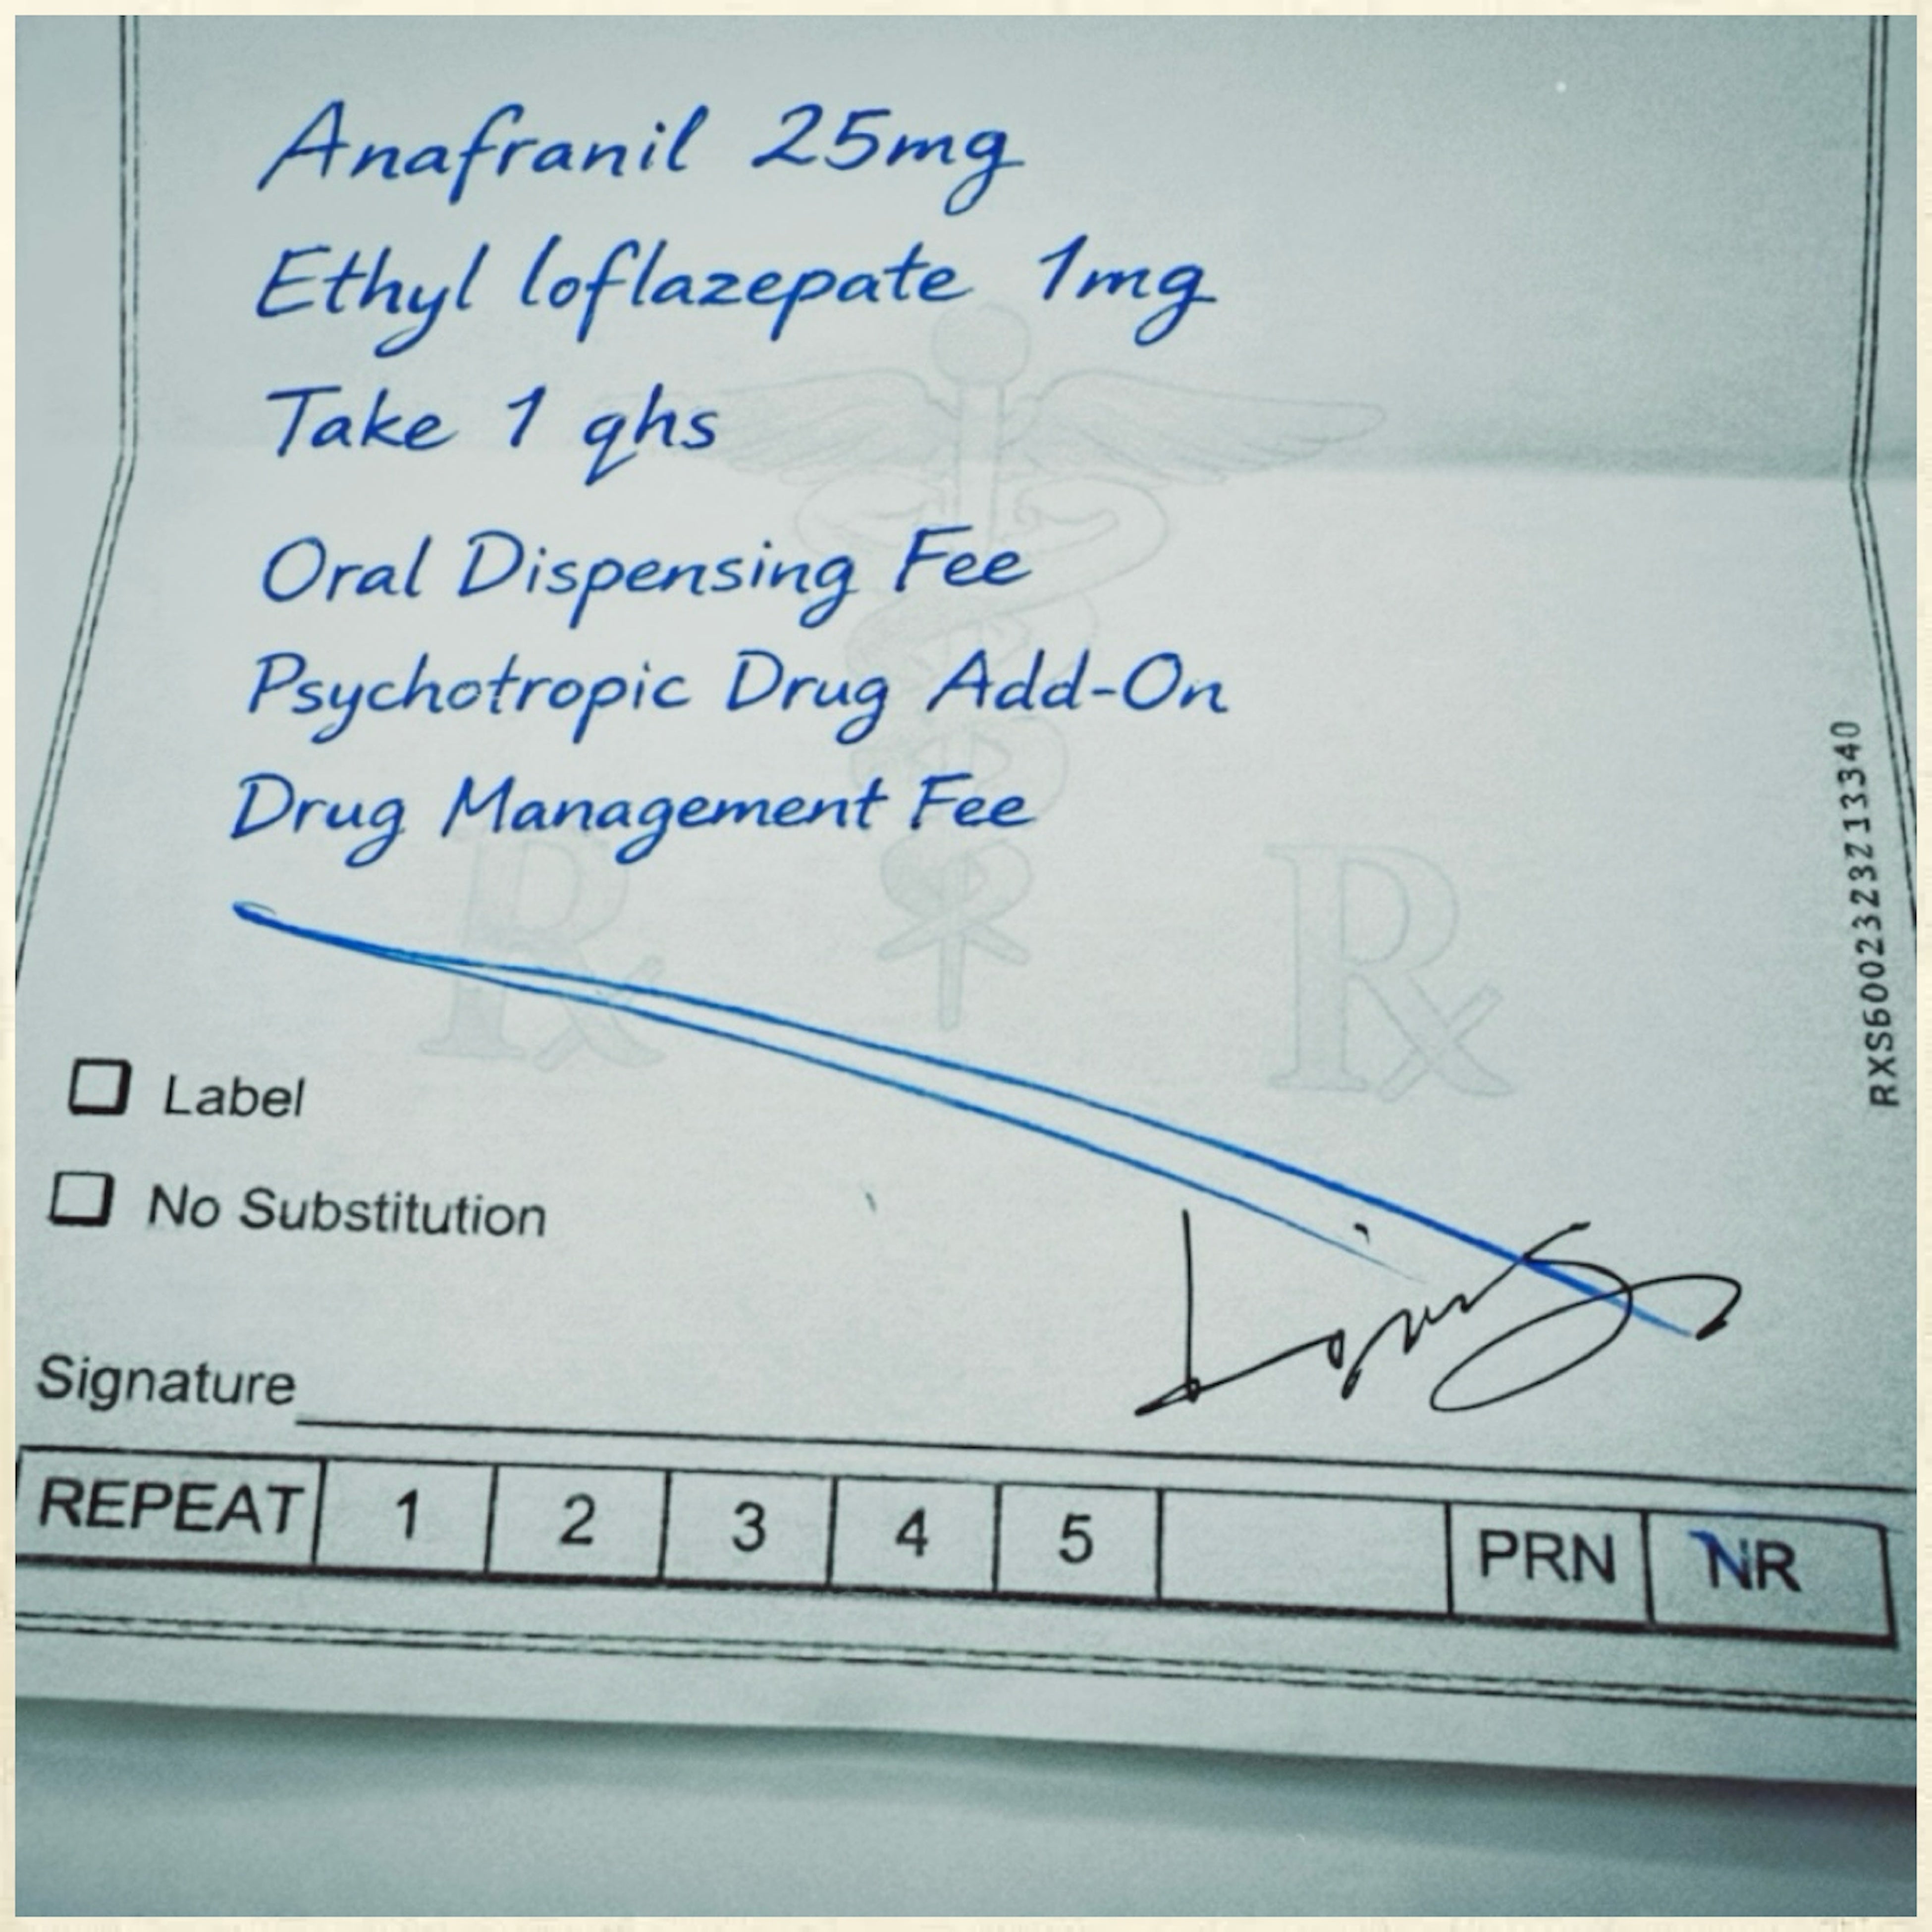 Anafranil 25mg
Ethyl loflazepate 1mg
Take 1 qhs
Oral Dispensing Fee
Psychotropic Drug Add-On
Drug Management Fee
Rx Rx
RXS6002323213340
Label
No Substitution
Signature
REPEAT 1 2 3 4 5 PRN NR